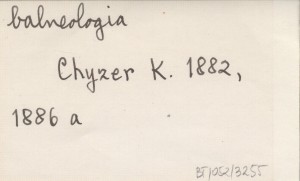 balneologia
Chyzer K. 1882,
1886 a
BT/052/3255